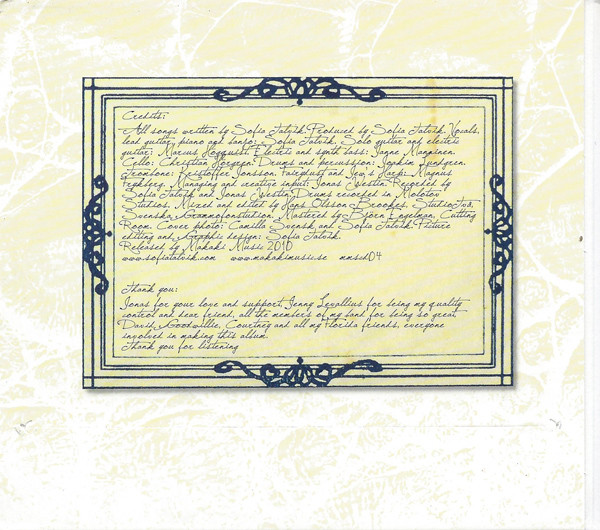 Credits:
All songs written by Sofia Talvik. Produced by Sofia Talvik. Vocals,
lead guitar, piano and sansor: Sofia Talvik. Solo guitar and electric
guitar: Marcus Högquist. Electric and synth bass: Janne Manninen.
Cello: Christian Hörgren. Drums and percussion: Joakim Lundgren.
Trombone: Kristoffer Jonsson. Fairydust and Jew's Harp: Magnus
Frykberg. Managing and creative input: Jonas Westin. Recorded by
Sofia Talvik and Jonas Westin. Drums recorded in Molotov
Studios. Mixed and edited by Hans Olsson Brookes, Studio Two,
Svenska Grammofonstudion. Mastered by Björn Engelman, Cutting
Room. Cover photo: Camilla Svensk and Sofia Talvik. Picture
editing and Graphic design: Sofia Talvik.
Released by Makaki Music 2010
www.sofiatalvik.com www.makakimusic.se mmscd04
Thank you:
Jonas for your love and support, Jenny Levallius for being my quality
control and dear friend, all the members of my band for being so great
David Goodwillie, Courtney and all my Florida friends, everyone
involved in making this album.
Thank you for listening